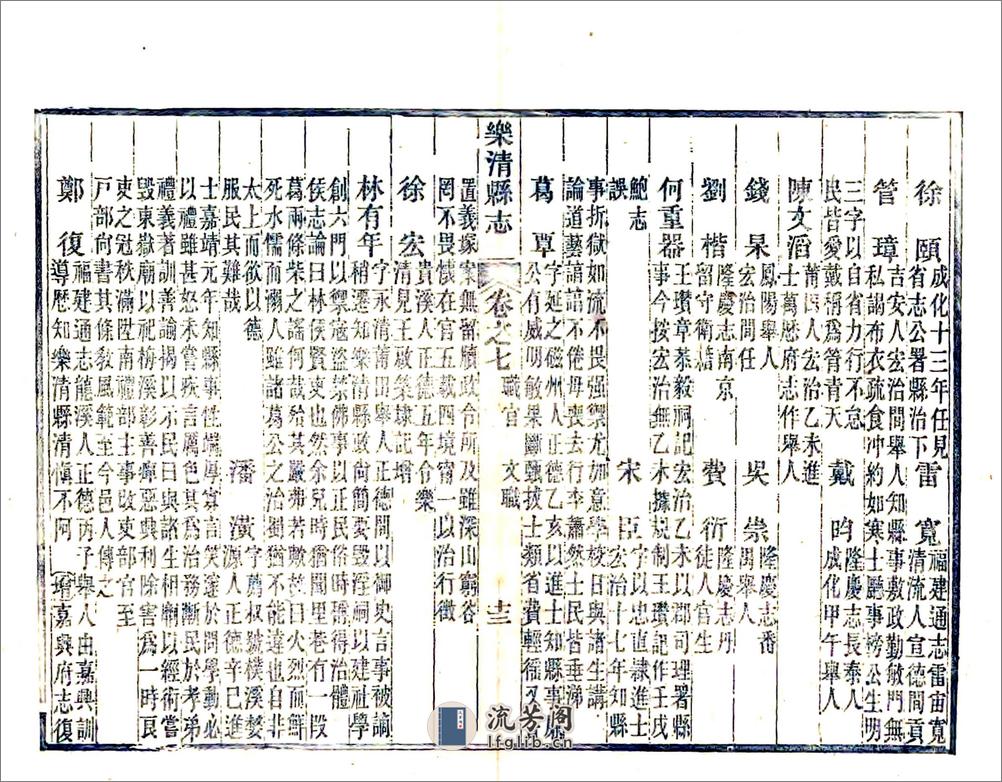 徐頤 成化十三年任見省志公署縣治下 雷寬 福建通志雷宙寬清流人宣德間貢
管璋 吉安人宏治間舉人知縣事敷政勤敏門無私謁布衣疏食沖約如寒士廳事榜公生明
三字以自省力行不怠民皆愛戴稱爲管青天 戴昀 隆慶志長泰人成化甲午舉人
陳文滔 莆田人宏治乙未進士萬歷府志作舉人
錢杲 鳳陽舉人宏治間任 吳崇 隆慶志番禺舉人
劉楷 隆慶志南京留守衛籍 費衍 隆慶志丹徒人官生
何重器 王瓚章恭毅祠記宏治乙未以郡司理署縣事今按宏治無乙未據規制王瓚記作壬戌
鮑志誤 宋臣 字以忠直隸進士宏治十七年知縣
事折獄如流不畏强禦尤加意學校日與諸生講論道藝諳諳不倦毋喪去行李蕭然士民皆垂涕
葛覃 字延之磁州人正德乙亥以進士知縣事廉公有威明敏果斷甄拔士類省費輕徭又
樂清縣志 卷之七 職官 文職 十三
置義塚案無留牘政令所及雖深山窮谷罔不畏懷在官五載四境甯一以治行徵
徐宏 貴溪人正德五年令樂清見王敬築隶記增
林有年 字永清莆田舉人正德間以御史言事被謫稍遷知樂清縣政尚簡要毁淫祠以建社學
創六門以禦寇盜禁佛事以正民俗時翕得治體侯志論曰林侯賢吏也然余兒時猶聞里巷有一叚
葛兩條柴之謠何哉殆其嚴弗若歟然曰火烈而鮮死水懦而溺人雖諸葛公之治獨猶不能違也自非
太上而欲以德服民其難哉 潘潢 字薦叔號樸溪婺源人正德辛巳進
士嘉靖元年知縣事性端厚寡言笑邃於問學動必以禮雖甚怒未嘗疾言厲色其爲治務漸民於孝弟
禮義著訓善諭揭以示民日與諸生相以經術嘗毁東嶽廟以祀梅溪彰善癉惡興利除害爲一時良
吏之冠秋滿陞南禮部主事改吏部官至戸部尚書其條敎風範至今邑人傳之
鄭復 福建通志龍溪人正德丙子舉人由嘉興訓導歷知樂清縣清愼不阿 增嘉興府志復
流芳阁
lfglib.cn